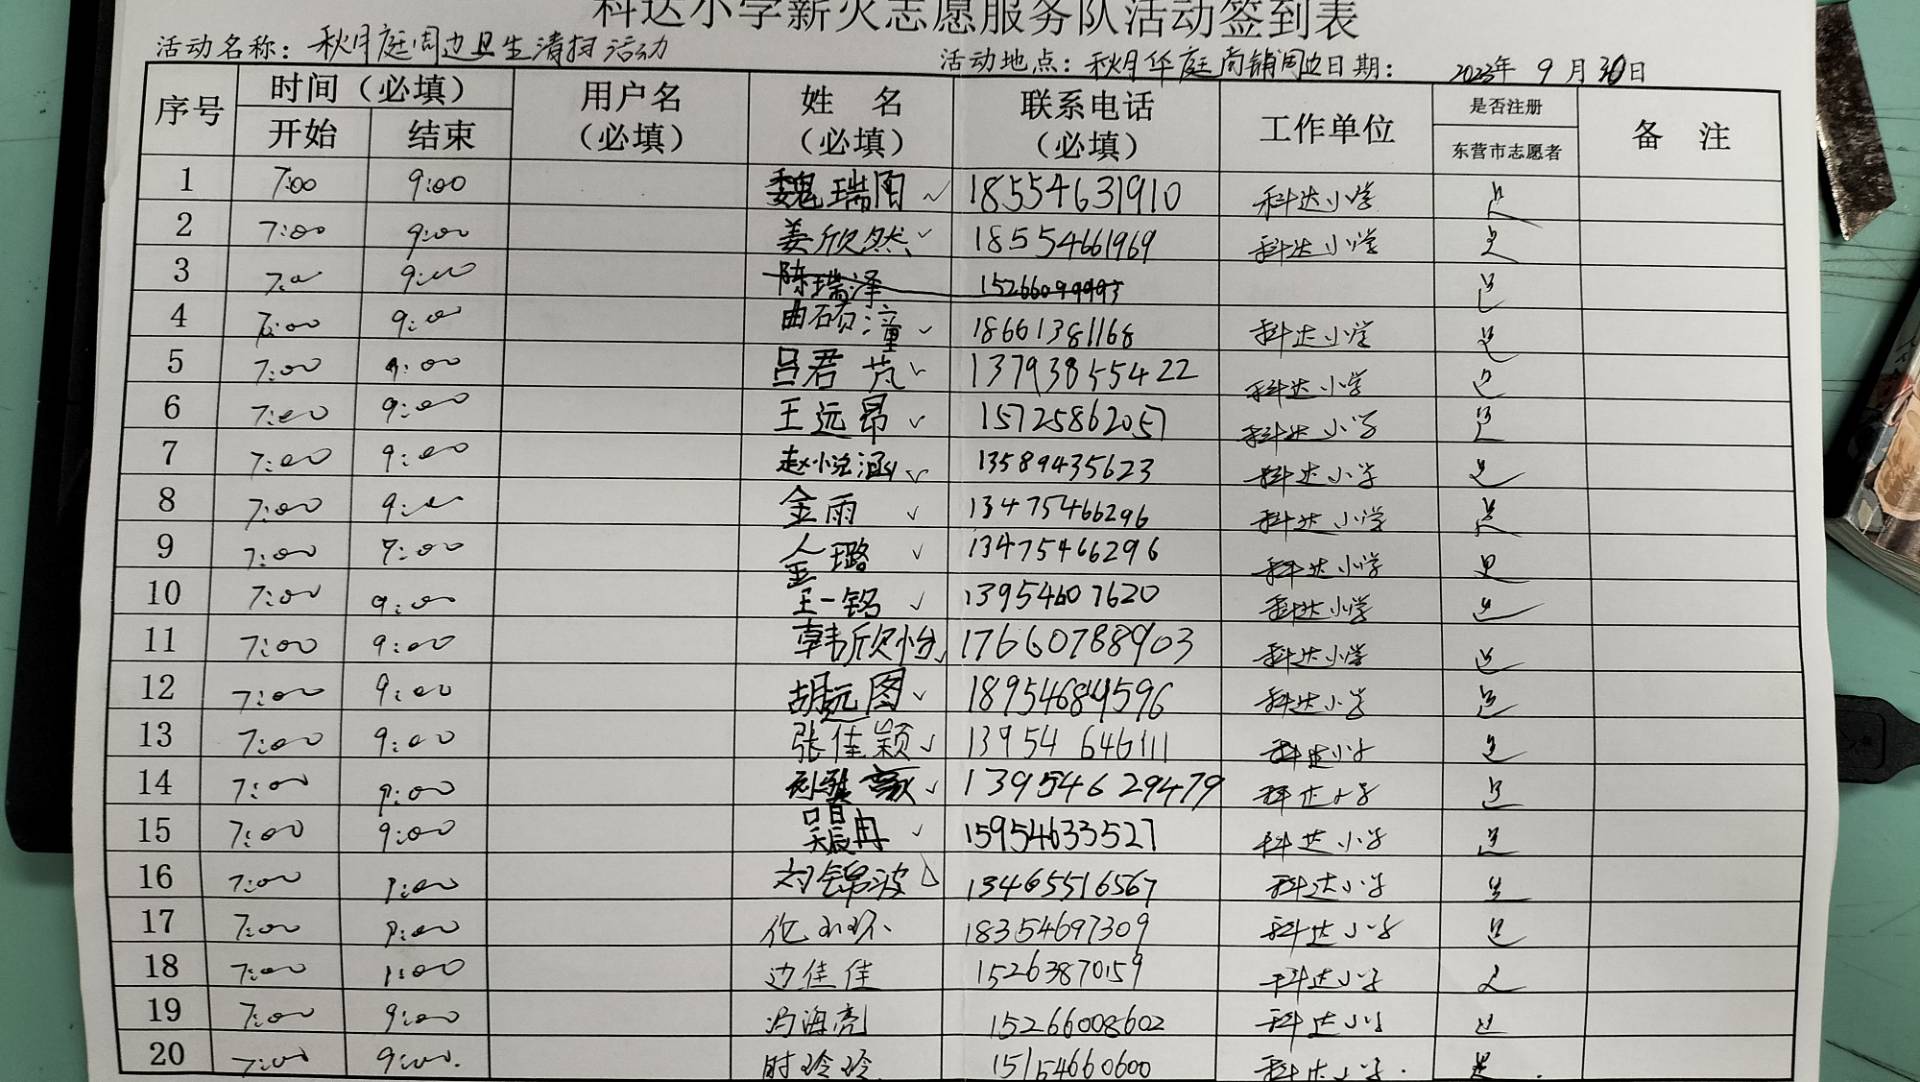 科达小学薪火志愿服务队活动签到表
活动名称：秋月庭周边卫生清扫活动 活动地点：秋月华庭商铺周边 日期： 2023年 9 月 30日
序号 时间（必填） 用户名（必填） 姓 名（必填） 联系电话（必填） 工作单位 是否注册 备 注
开始 结束 东营市志愿者
1 7:00 9:00 魏瑞图 ✓ 18554631910 科达小学 是
2 7:00 9:00 姜欣然 ✓ 18554661969 科达小学 是
3 7:00 9:00 陈瑞泽 是
4 7:00 9:00 曲硕潼 ✓ 18661381168 科达小学 是
5 7:00 9:00 吕君芃 ✓ 13793855422 科达小学 是
6 7:00 9:00 王远昂 ✓ 15725862057 科达小学 是
7 7:00 9:00 赵悦涵 ✓ 13589435623 科达小学 是
8 7:00 9:00 金雨 ✓ 13475466296 科达小学 是
9 7:00 9:00 金璐 ✓ 13475466296 科达小学 是
10 7:00 9:00 王一铭 ✓ 13954607620 科达小学 是
11 7:00 9:00 韩欣怡 ✓ 17660788903 科达小学 是
12 7:00 9:00 胡远图 ✓ 科达小学 是
13 7:00 9:00 张佳颖 ✓ 13954646111 科达小学 是
14 7:00 9:00 ✓ 139546 29479 科达小学 是
15 7:00 9:00 吴晨冉 ✓ 15954633527 科达小学 是
16 7:00 9:00 刘锦波 13465516567 科达小学 是
17 7:00 9:00 18354697309 科达小学 是
18 7:00 9:00 边佳佳 15263870159 科达小学 是
19 7:00 9:00 冯海亮 15266008602 科达小学 是
20 7:00 9:00 时玲玲 15154660600 科达小学 是